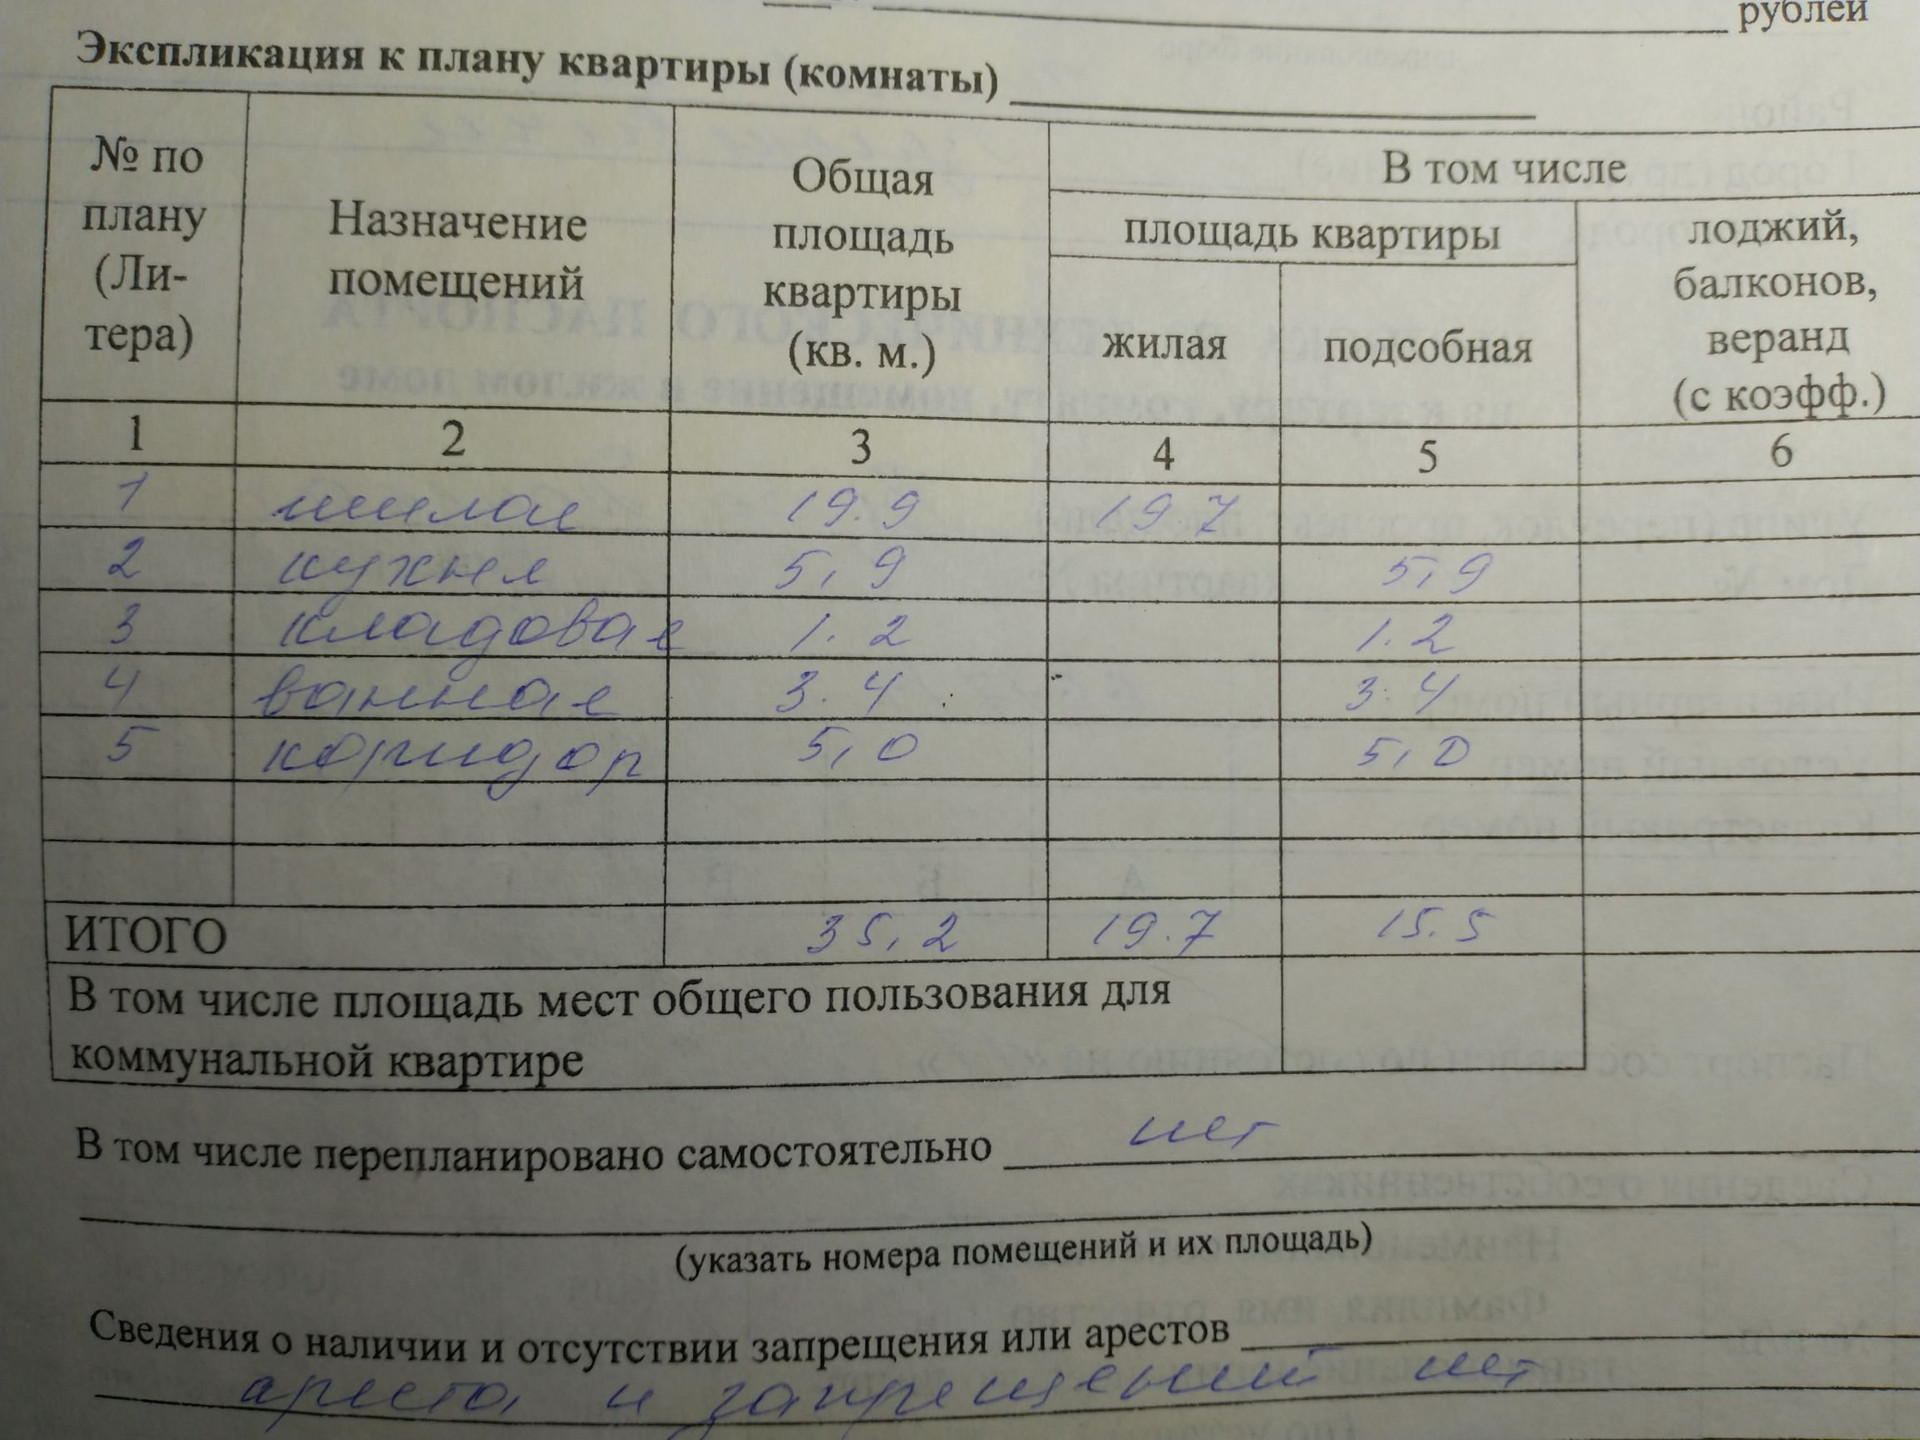 рублей
Экспликация к плану квартиры (комнаты)
№ по плану (Ли-тера) | Назначение помещений | Общая площадь квартиры (кв. м.) | В том числе
площадь квартиры | лоджий, балконов, веранд (с коэфф.)
жилая | подсобная
1 2 3 4 5 6
1 жилая 19.9 19 7
2 кухня 5,9 5,9
3 кладовая 1.2 1.2
4 ванная 3.4 3.4
5 коридор 5,0 5,0
ИТОГО 35,2 19.7 15.5
В том числе площадь мест общего пользования для
коммунальной квартире
В том числе перепланировано самостоятельно нет
(указать номера помещений и их площадь)
Сведения о наличии и отсутствии запрещения или арестов
ареста и запрещений нет